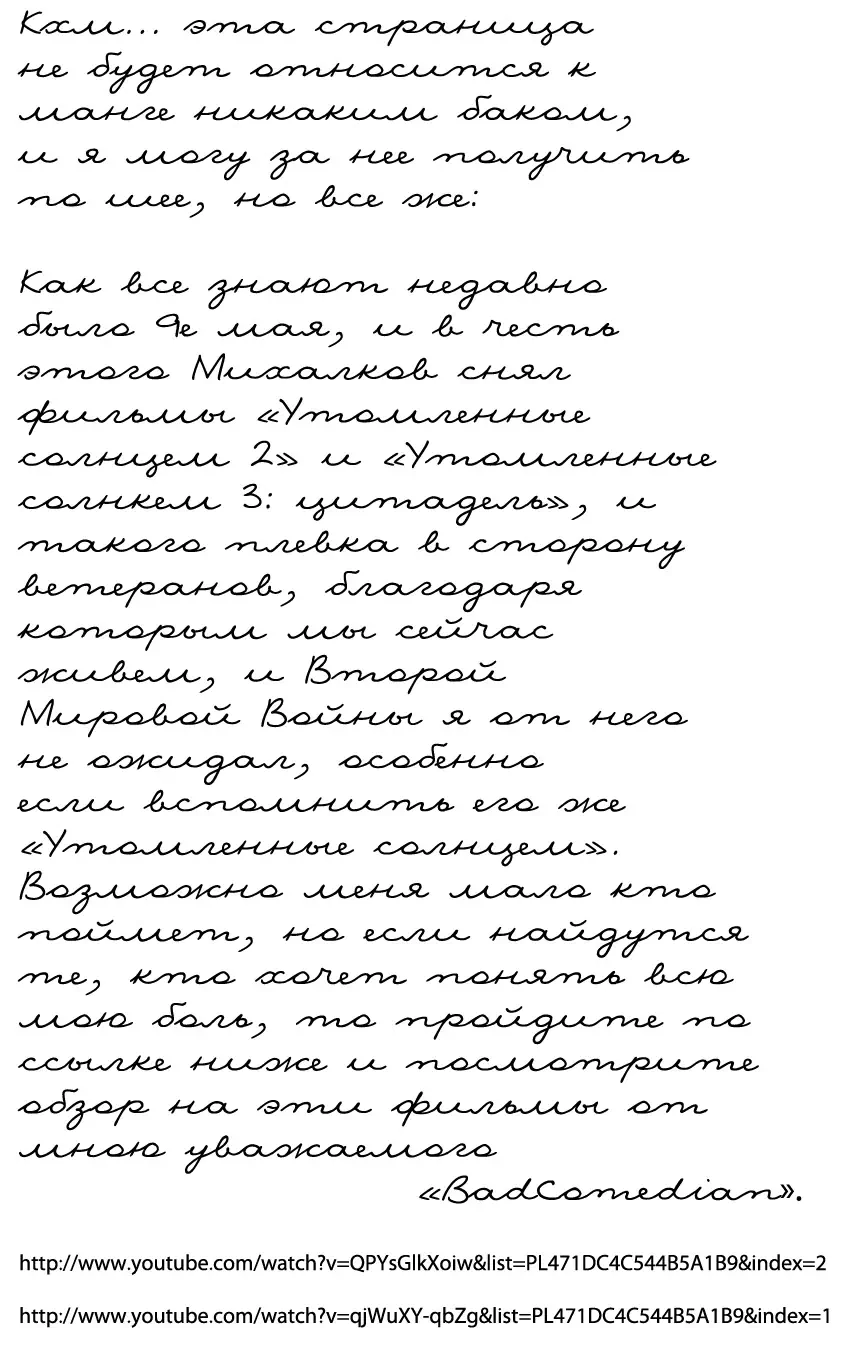 Кхм... эта страница
не будет относится к
манге никаким баком,
и я могу за нее получить
по шее, но все же:
Как все знают недавно
было 9е мая, и в честь
этого Михалков снял
фильмы «Утомленные
солнцем 2» и «Утомленные
солнкем 3: цитадель», и
такого плевка в сторону
ветеранов, благодаря
которым мы сейчас
живем, и Второй
Мировой Войны я от него
не ожидал, особенно
если вспомнить его же
«Утомленные солнцем».
Возможно меня мало кто
поймет, но если найдутся
те, кто хочет понять всю
мою боль, то пройдите по
ссылке ниже и посмотрите
обзор на эти фильмы от
мною уважаемого
«BadComedian».
http://www.youtube.com/watch?v=QPYsGlkXoiw&list=PL471DC4C544B5A1B9&index=2
http://www.youtube.com/watch?v=qjWuXY-qbZg&list=PL471DC4C544B5A1B9&index=1